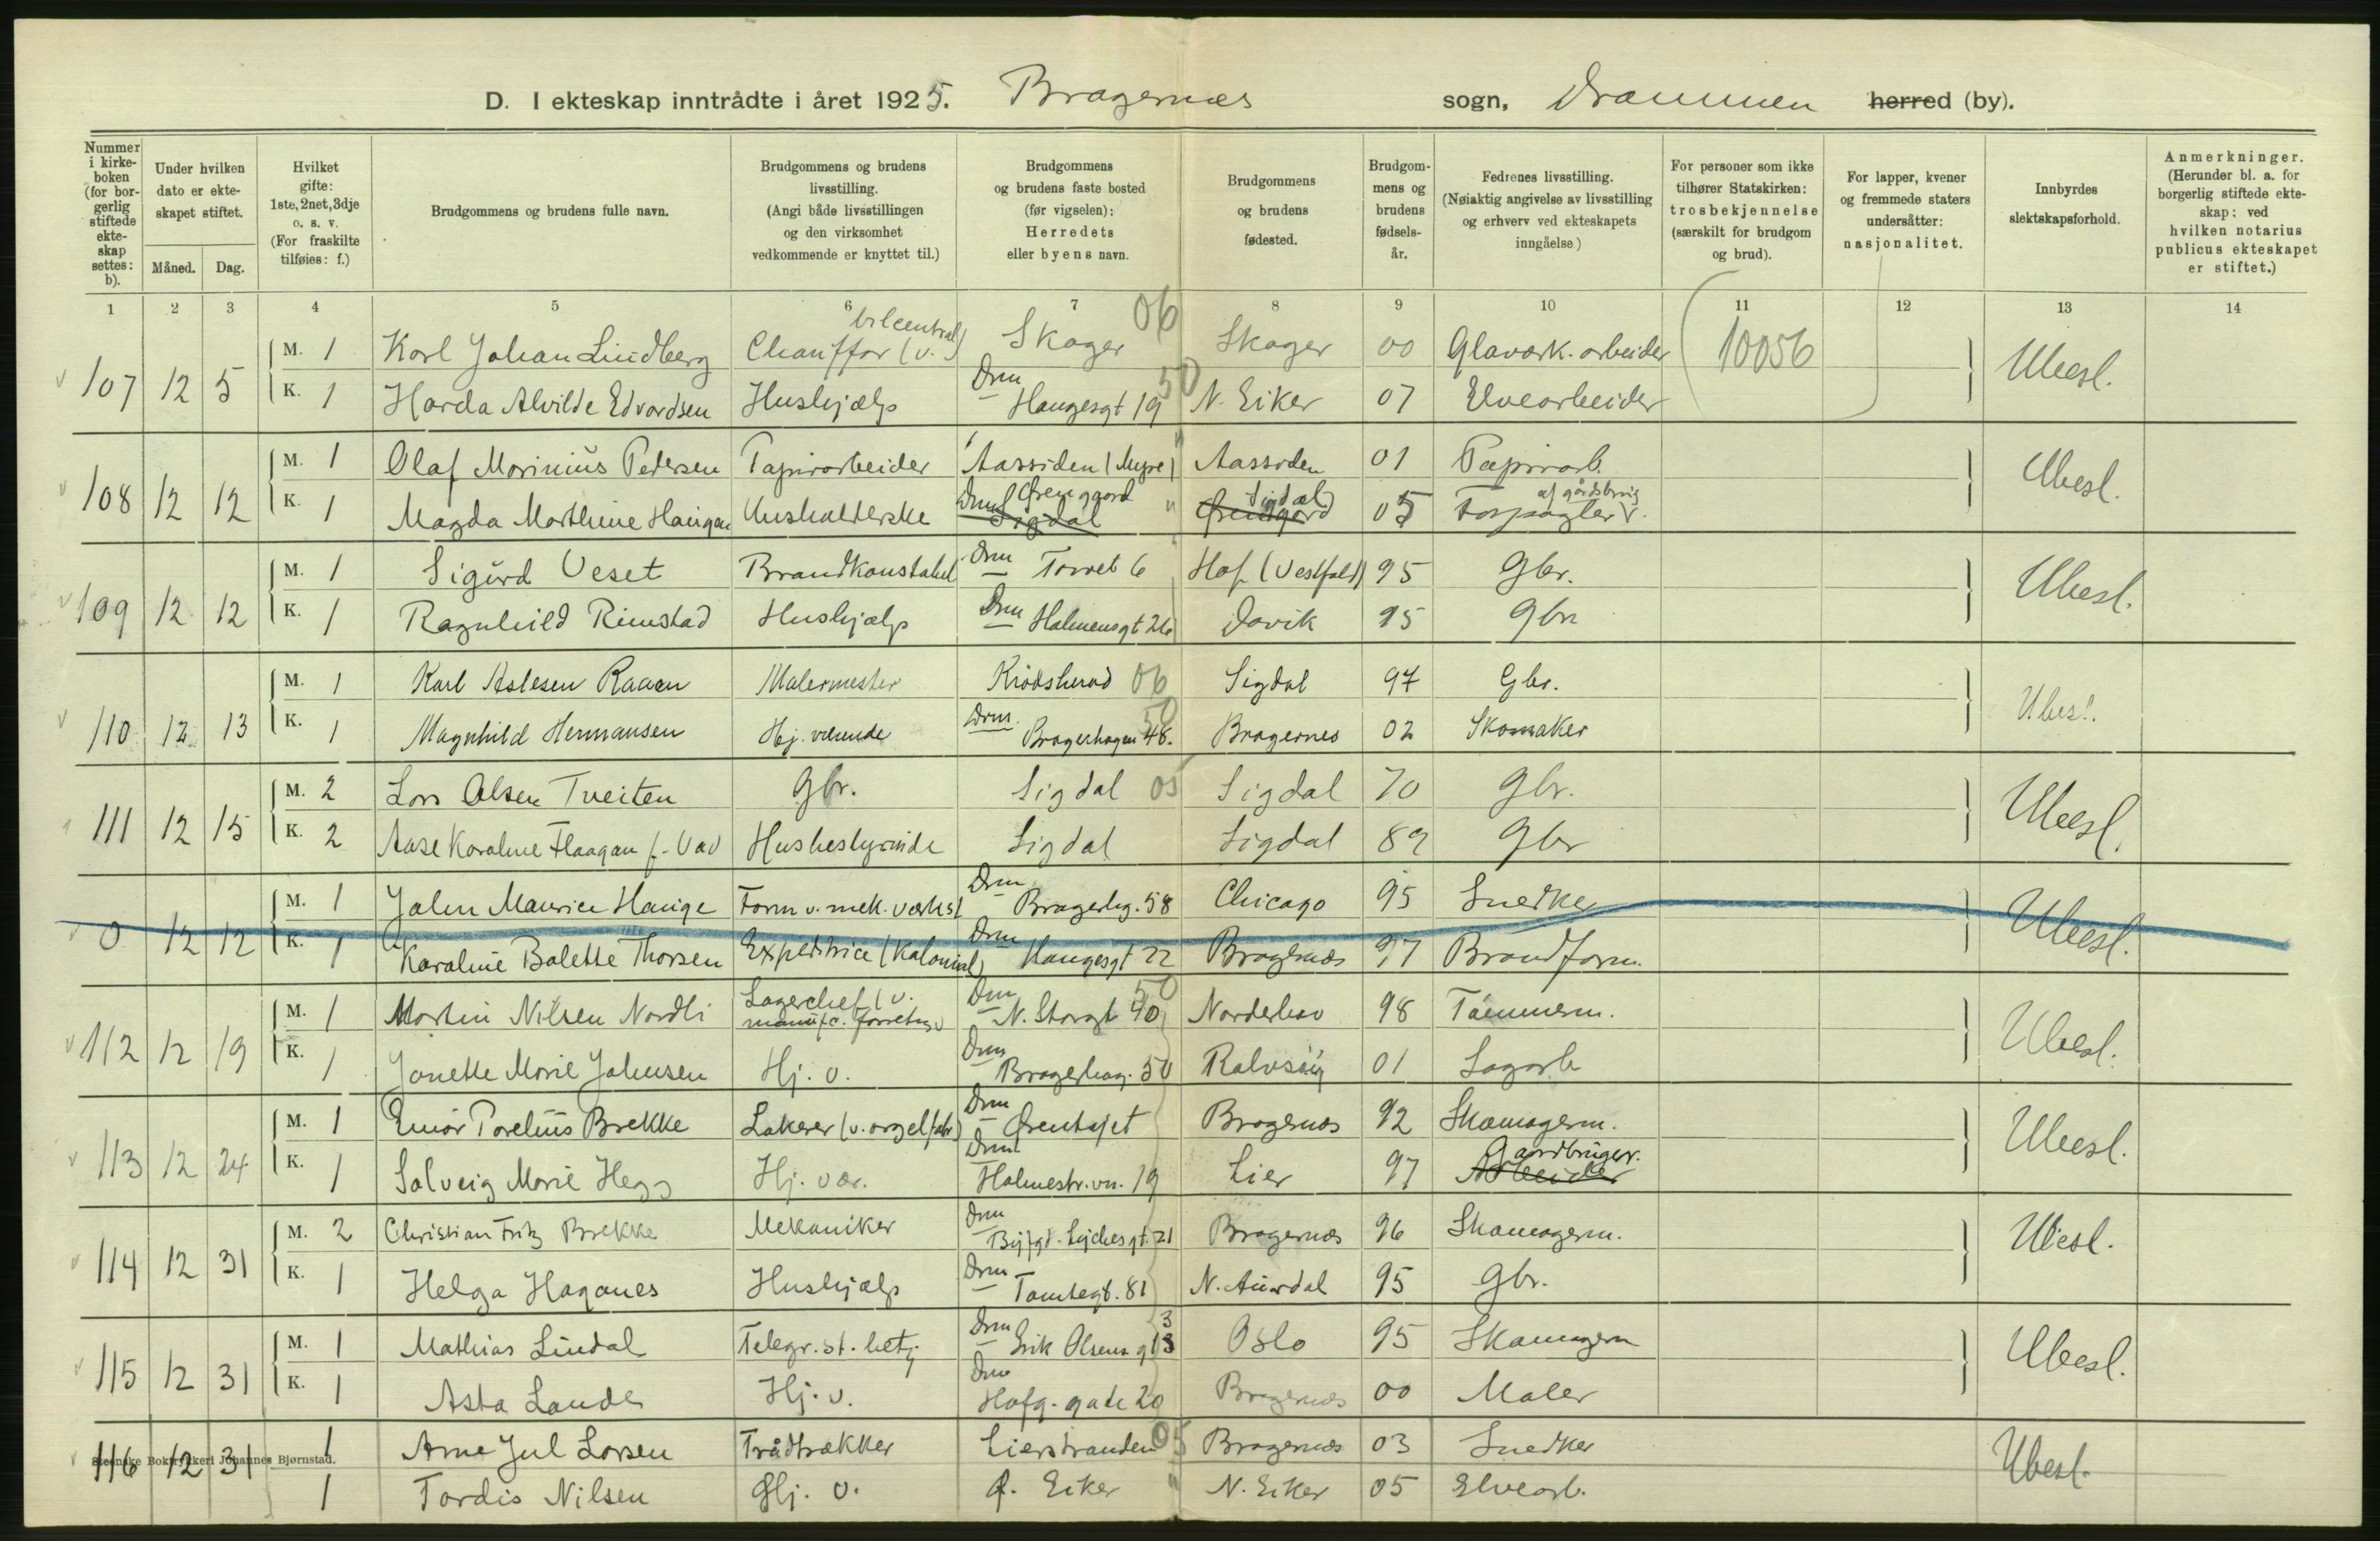 D. I ekteskap inntrådte i året 1925. Bragernes sogn, Drammen herred (by).
Nummer i kirke-boken (for bor-gerlig stiftede ekte-skap settes: b).
Under hvilken dato er ekte-skapet stiftet.
Måned. Dag.
Hvilket gifte: 1ste, 2net, 3dje o. s. v. (For fraskilte tilføies: f.)
Brudgommens og brudens fulle navn.
Brudgommens og brudens livsstilling. (Angi både livsstillingen og den virksomhet vedkommende er knyttet til.)
Brudgommens og brudens faste bosted (før vigselen): Herredets eller byens navn.
Brudgommens og brudens fødested.
Brudgom-mens og brudens fødsels-år.
Fedrenes livsstilling. (Nøiaktig angivelse av livsstilling og erhverv ved ekteskapets inngåelse.)
For personer som ikke tilhører Statskirken: trosbekjennelse (særskilt for brudgom og brud).
For lapper, kvener og fremmede staters undersåtter: nasjonalitet.
Innbyrdes slektskapsforhold.
Anmerkninger. (Herunder bl. a. for borgerlig stiftede ekte-skap: ved hvilken notarius publicus ekteskapet er stiftet.)
1 2 3 4 5 6 7 8 9 10 11 12 13 14
107 12 5 M. 1 Karl Johan Lindberg Chauffør (v. bilcentral) Skoger 06 Skoger 00 Glaværk. arbeider 10056 Ubesl.
K. 1 Harda Alvilde Edvardsen Hushjælp Drm Haugesgt 19 50 N. Eiker 07 Elvearbeider
108 12 12 M. 1 Olaf Marinius Pedersen Papirarbeider Aassiden (Myre) Aassiden 01 Papirarb. Ubesl.
K. 1 Magda Marthine Haugan Husholderske Drm Øren gaard Sigdal Sigdal 05 Forpagter af gårdsbrug
109 12 12 M. 1 Sigurd Veset Brandkonstabel Drm Torvet 6 Hof (Vestfold) 95 Gbr. Ubesl.
K. 1 Ragnhild Rimstad Hushjælp Drm Holmensgt 26 Davik 95 Gbr
110 12 13 M. 1 Karl Aslesen Raaen Malermester Krødsherad 06 Sigdal 97 Gbr. Ubesl.
K. 1 Magnhild Hermansen Hj. værende Drm. Bragerhagen 48. 50 Bragernes 02 Skomaker
111 12 15 M. 2 Lars Olsen Tveiten Gbr. Sigdal 05 Sigdal 70 Gbr. Ubesl.
K. 2 Aase Karoline Flaagan f. Vad Husbestyrinde Sigdal Sigdal 89 Gbr
0 12 12 M. 1 John Maurice Hauge Form v. mek. værkst Drm Bragerhg. 58 Chicago 95 Snedker Ubesl.
K. 1 Karoline Bolette Thorsen Expeditrice (Kolonial) Drm Haugesgt 22 Bragernæs 97 Brandform.
112 12 19 M. 1 Martin Nilsen Nordli Lagerchef (v. manufc. forretng) Drm N. Storgt 40 50 Norderhov 98 Tømmerm. Ubesl.
K. 1 Jonette Marie Johnsen Hj. v. Drm Bragerhag. 50 Kolvsøy 01 Sagarb
113 12 24 M. 1 Einar Torelius Brekke Lakerer (v. orgelfabr) Drm Ørentoppet Bragernæs 92 Skomagerm. Ubesl.
K. 1 Solveig Marie Hegg Hj. vær. Drm Holmestr. vn. 19 Lier 97 Arbeider Gaardbruger.
114 12 31 M. 2 Christian Fritz Brekke Mekaniker Drm Byfgd. Lychesgt. 21 Bragernæs 96 Skomagerm. Ubesl.
K. 1 Helga Haganes Hushjælp Drm Tomtegt. 81 N. Aurdal 95 Gbr.
115 12 31 M. 1 Mathias Lindal Telegr. st. betj Drm Erik Olsens gt 3 Oslo 95 Skomagerm Ubesl.
K. 1 Asta Lande Hj. v. Drm Hofg. gate 20 Bragernæs 00 Maler
116 12 31 1 Arne Jul Larsen Trådtrækker Lierstranden 05 Bragernæs 03 Snedker Ubesl.
Steenske Boktrykkeri Johannes Bjørnstad.
1 Tordis Nilsen Hj. v. Ø. Eiker N. Eiker 05 Elvearb.